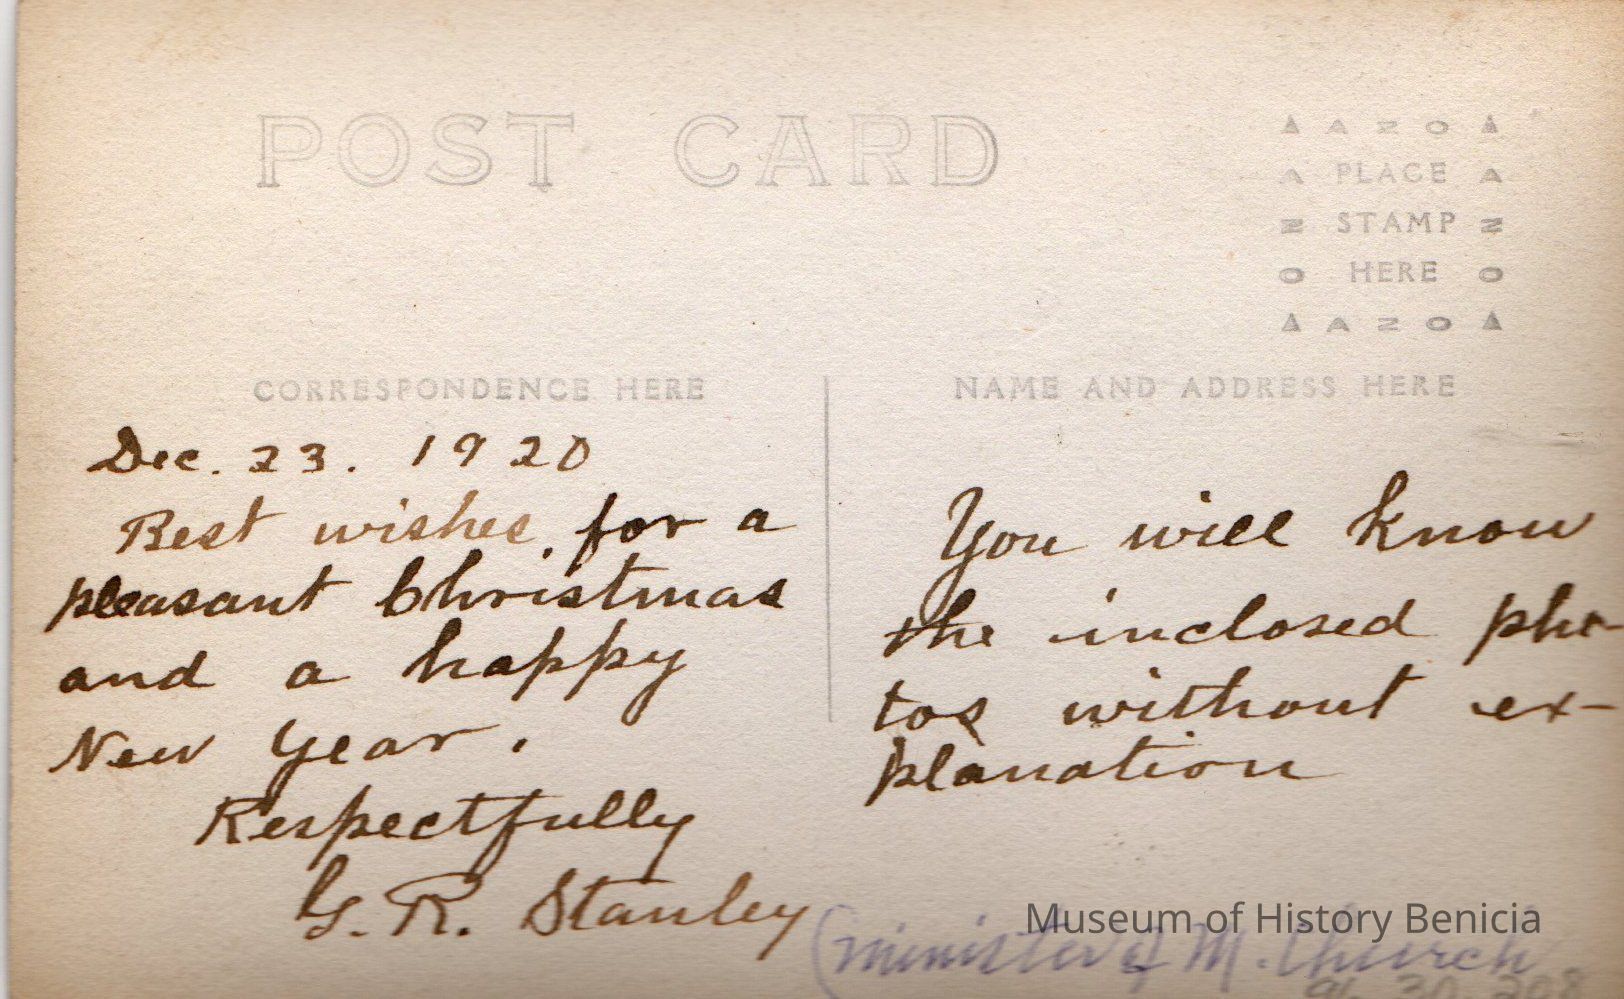 POST CARD
AZO
PLACE
STAMP
HERE
AZO
CORRESPONDENCE HERE
NAME AND ADDRESS HERE
Dec. 23. 1920
Best wishes for a
pleasant Christmas
and a happy
New Year.
Respectfully
G. R. Stanley
You will know
the inclosed pho-
tos without ex-
planation
Museum of History Benicia
(minister of M. Church